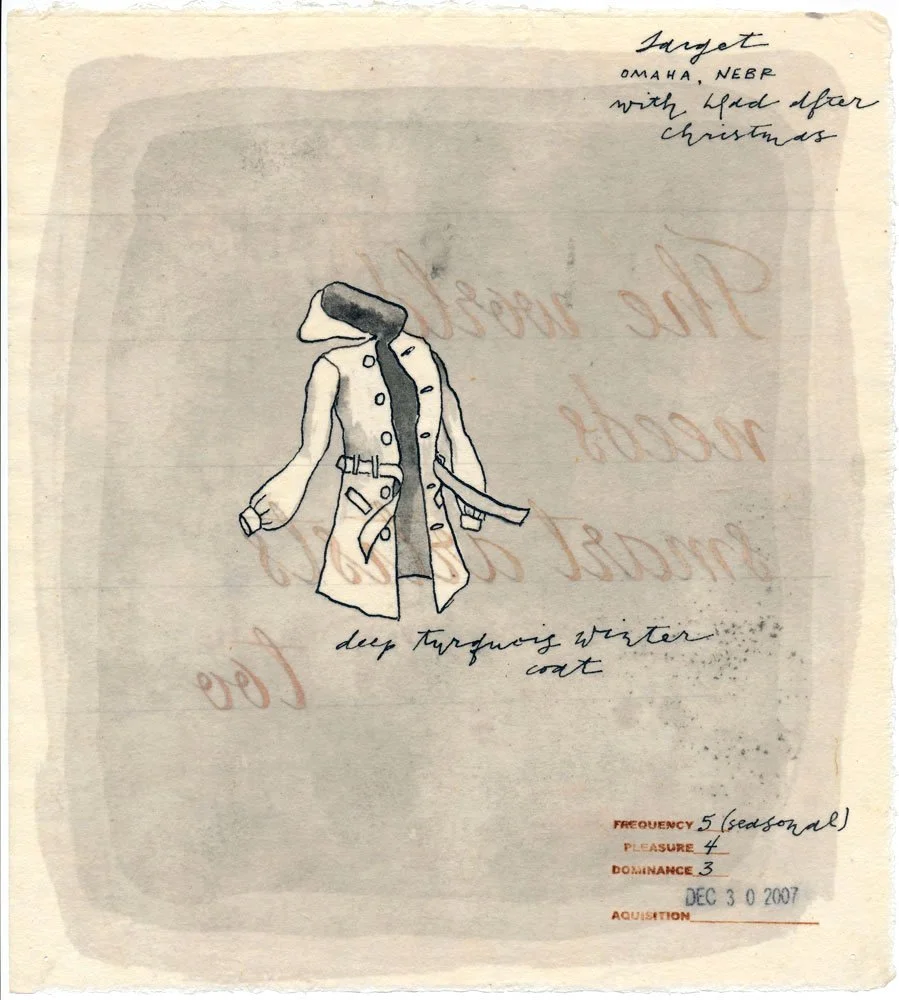 Target
OMAHA, NEBR
with Dad after
Christmas
The world
needs
smart artists
too
deep turquois winter
coat
FREQUENCY 5 (seasonal)
PLEASURE 4
DOMINANCE 3
DEC 30 2007
AQUISITION